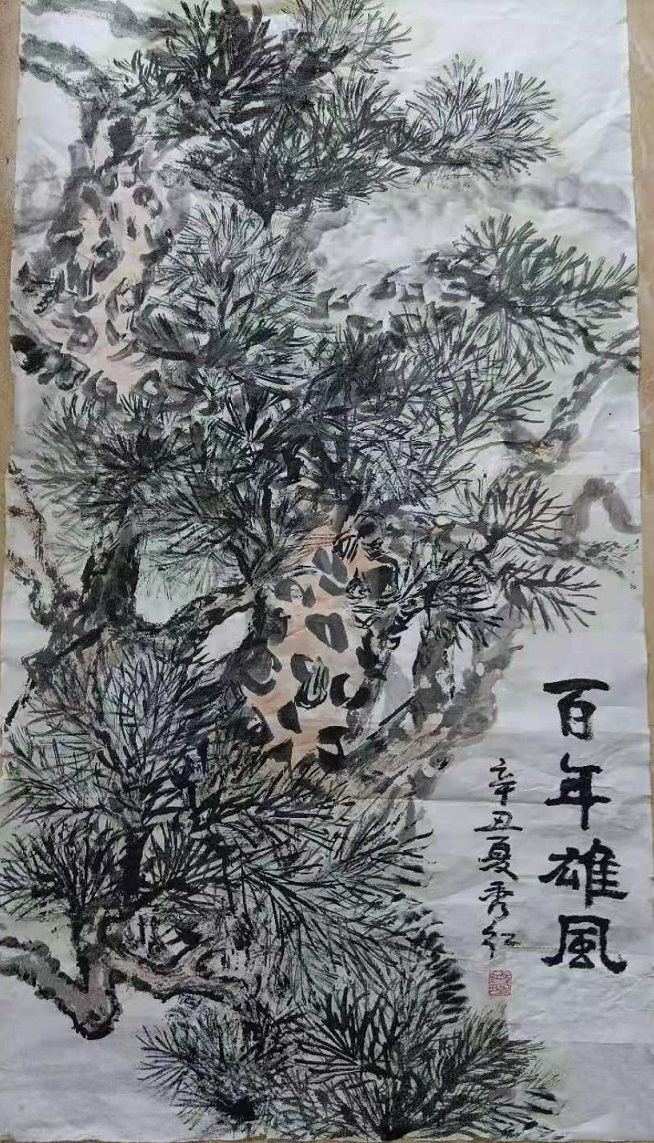 百年雄風
辛丑夏秀红